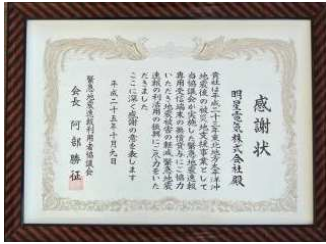 感謝状
明星電気株式会社殿
貴社は平成二十三年東北地方太平洋沖
地震後の被災地支援事業として
当協議会が実施した緊急地震速報
専用受信端末の無償貸与にご協力
いただき地震被害の軽減緊急地震
速報の利活用の振興にご尽力をいた
だきました
ここに深く感謝の意を表します
平成二十五年十月九日
緊急地震速報利用者協議会
会長 阿部勝征